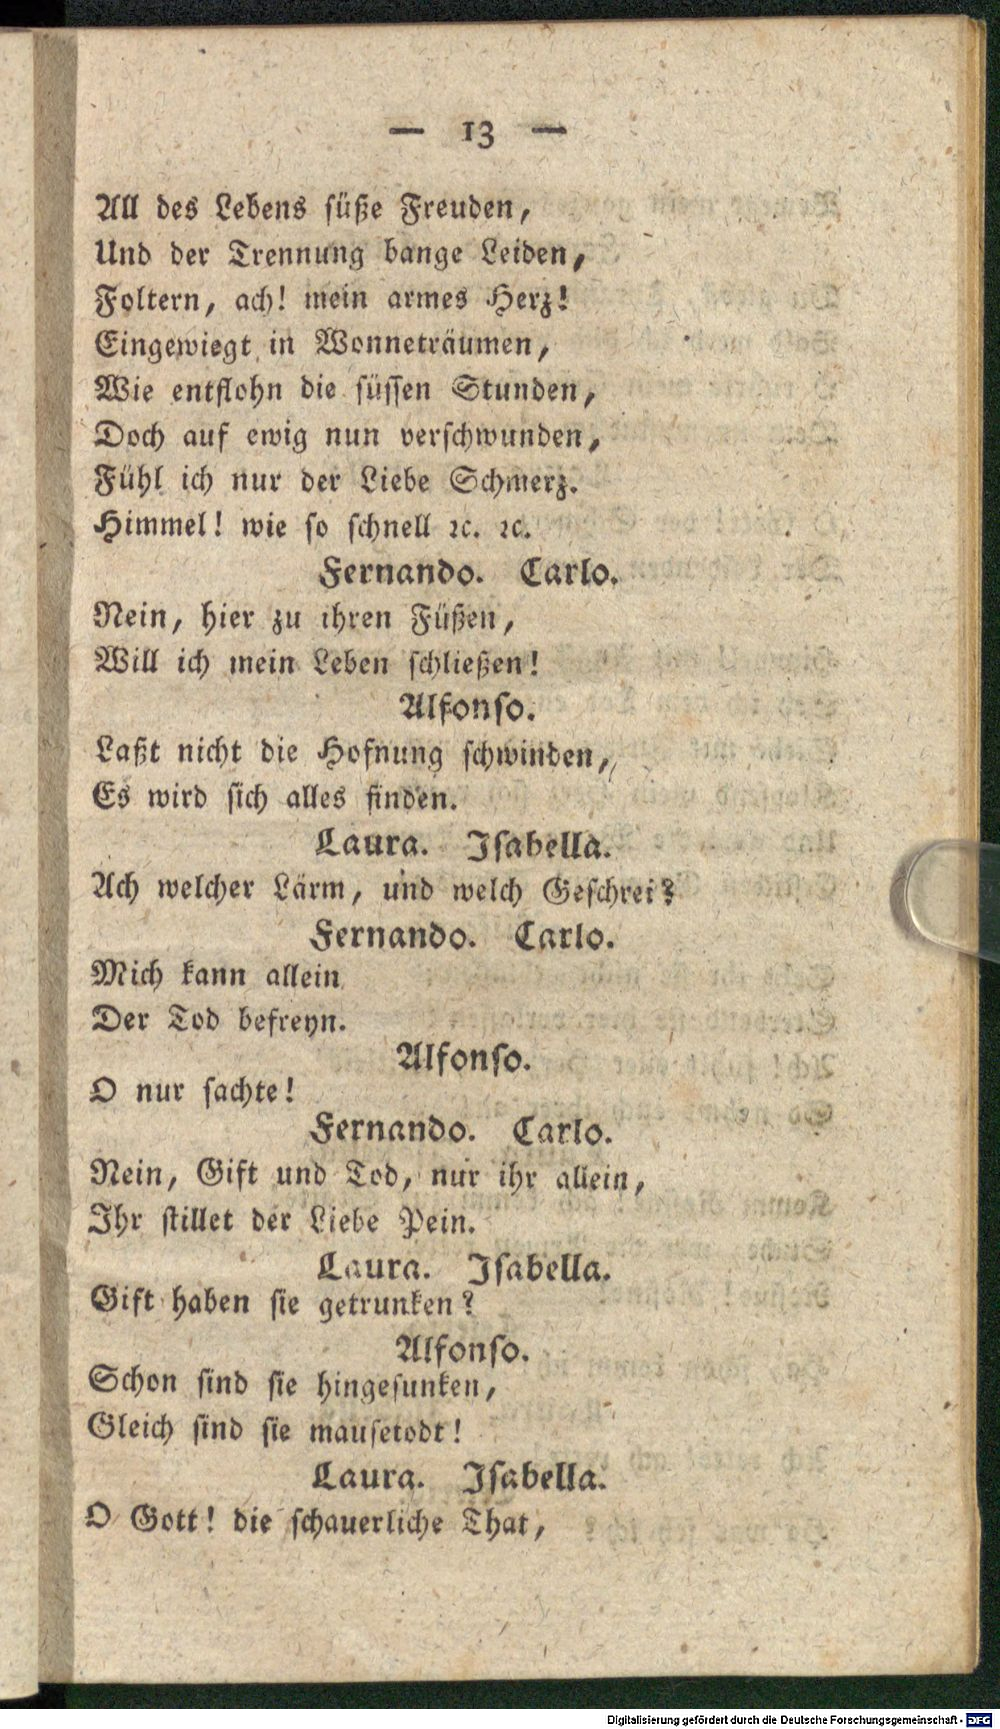 — 13 —
All des Lebens süße Freuden,
Und der Trennung bange Leiden,
Foltern, ach! mein armes Herz!
Eingewiegt in Wonneträumen,
Wie entflohn die süssen Stunden,
Doch auf ewig nun verschwunden,
Fühl ich nur der Liebe Schmerz.
Himmel! wie so schnell ꝛc. ꝛc.
Fernando. Carlo.
Nein, hier zu ihren Füßen,
Will ich mein Leben schließen!
Alfonso.
Laßt nicht die Hofnung schwinden,
Es wird sich alles finden.
Laura. Isabella.
Ach welcher Lärm, und welch Geschrei?
Fernando. Carlo.
Mich kann allein
Der Tod befreyn.
Alfonso.
O nur sachte!
Fernando. Carlo.
Nein, Gift und Tod, nur ihr allein,
Ihr stillet der Liebe Pein.
Laura. Isabella.
Gift haben sie getrunken?
Alfonso.
Schon sind sie hingesunken,
Gleich sind sie mausetodt!
Laura. Isabella.
O Gott! die schauerliche That,
Digitalisierung gefördert durch die Deutsche Forschungsgemeinschaft - DFG